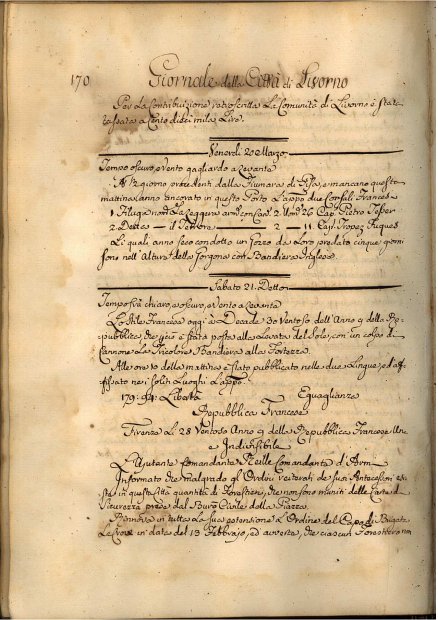 170 Giornale della Città di Livorno
Per la Contribuzione retroscritta la Comunità di Livorno è stata
tassata a Cento dieci mila Lire.
Venerdì 20 Marzo
Tempo oscuro, e Vento gagliardo a Levante
A ½ giorno procedenti dalla Fiumara di Pisa, e mancano questa
mattina, anno ancorato in questo Porto Capo due Corsali Francesi
1 Filuga nom. La Leggera arm. con Can. 2 Uom. 26 Cap. Pietro
2 Detta — il Terrore — 2 — 11. Cap. Tropez Hugues
Li quali anno seco condotto un Gozzo da Loro predato cinque giorni
sono nell'Altura della Gorgona con Bandiera Inglese.
Sabato 21. Detto
Tempo frà chiaro, e oscuro, e Vento a Levante
Lo Stile Francese oggi è Decade 30 Ventoso dell'Anno 9 della Re-
pubblica, che però è stata posta alla Levata del Sole, con un colpo di
Cannone la Tricolore Bandiera alla Fortezza.
Alle ore 10 della mattina è stato pubblicato nelle due Lingue, ed af-
fissato nei soliti Luoghi
179: Libertà Eguaglianza
Repubblica Francese
Firenze Li 28 Ventoso Anno 9 della Repubblica Francese Una
e Indivisibile
L'Ajutante Comandante Reille Comandante d'Arm
Informato che malgrado gl'Ordini reiterati de suoi Antecessori esi-
ste in questa Città quantità di Forastieri, che non sono muniti delle Carte di
Sicurezza prese dal Burò Civile della Piazza.
Rinnova in tutta la sua estensione l'Ordine del Capo di Brigata
La Croix in data del 13 Febbrajo, ed avverte, che ciascun Forestiero non